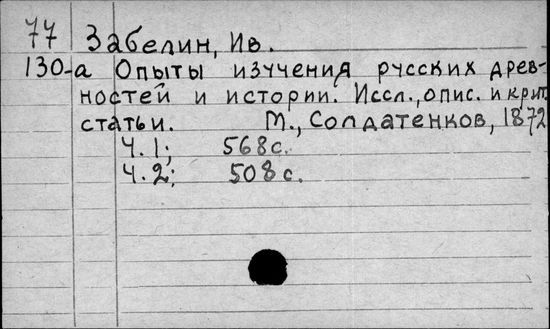 77 Забелин, Ив.
130-а Опыты изучения русских древ-
ностей и истории. Иссл., опис. и крит.
статьи. М., Солдатенков, 1872
Ч.1; 568с.
Ч.2; 508с.